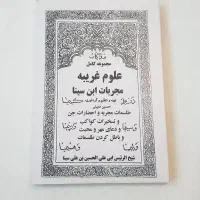 مجموعه کامل
علوم غریبه
مجربات ابن سینا
تهیه و تنظیم
طلسمات مجربه و احضارات جن
و تسخیرات کواکب
و دعای مهر و محبت
و باطل کردن طلسمات
شیخ الرئیس ابی علی الحسین بن علی سینا